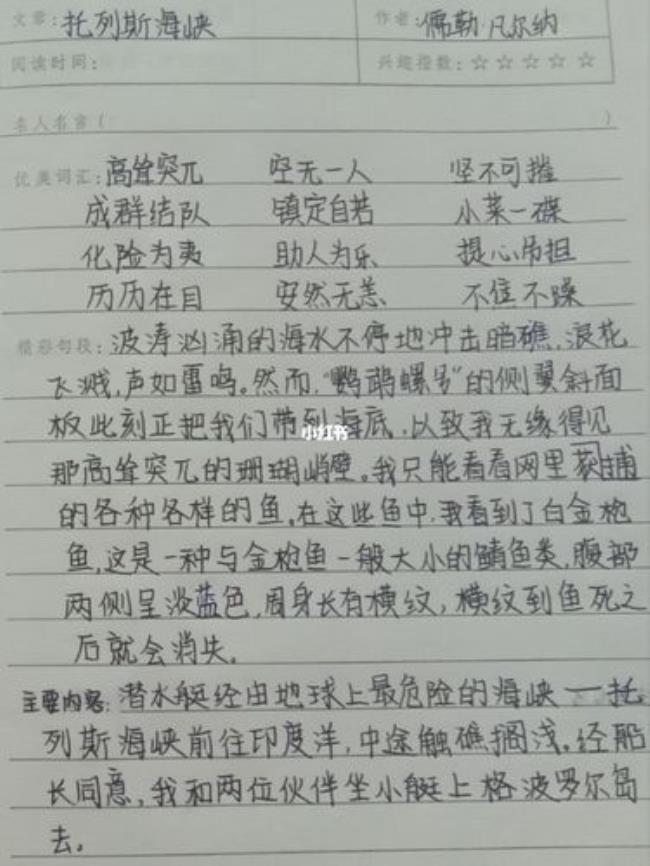 文章：托列斯海峡 作者：儒勒·凡尔纳
阅读时间： 兴趣指数：☆☆☆☆☆
名人名言（ ）
优美词汇：高耸突兀 空无一人 坚不可摧
成群结队 镇定自若 小菜一碟
化险为夷 助人为乐 提心吊担
历历在目 安然无恙 不住不躁
精彩句段：波涛汹涌的海水不停地冲击暗礁，浪花
飞溅，声如雷鸣。然而，“鹦鹉螺号”的侧翼斜面
板此刻正把我们带到海底，以致我无缘得见
小红书
那高耸突兀的珊瑚峭壁。我只能看看网里获捕
的各种各样的鱼。在这些鱼中，我看到了白金枪
鱼，这是一种与金枪鱼一般大小的鲭鱼类，腹部
两侧呈淡蓝色，周身长有横纹，横纹到鱼死之
后就会消失。
主要内容：潜水艇经由地球上最危险的海峡——托
列斯海峡前往印度洋，中途触礁搁浅。经船
长同意，我和两位伙伴坐小艇上格波罗尔岛
去。